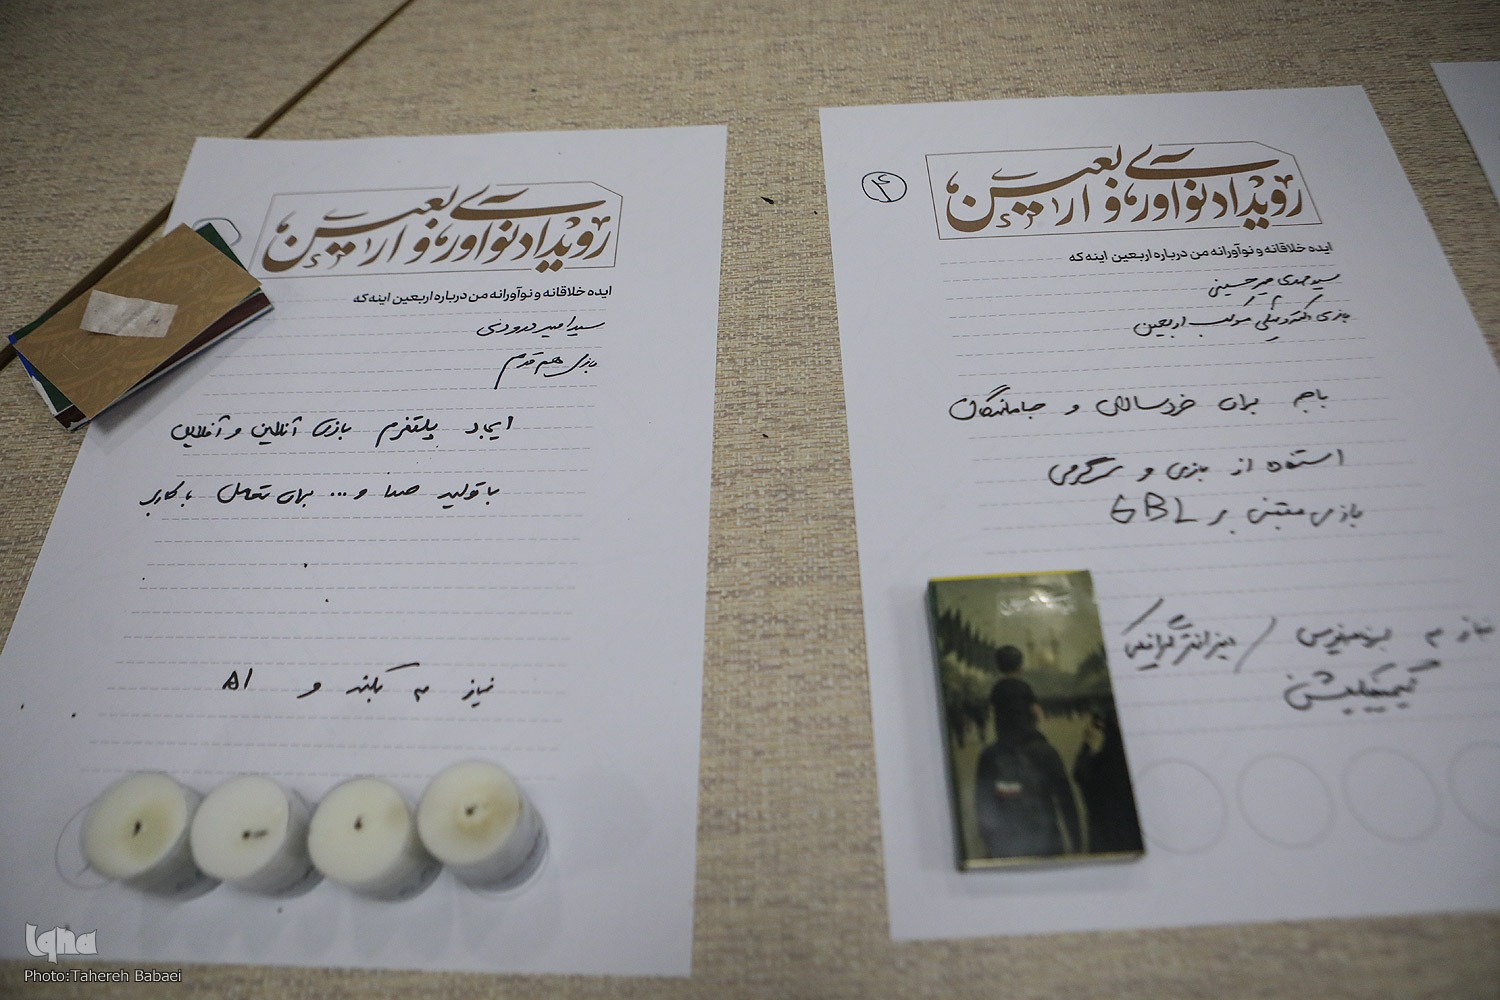 رویداد نوآوری و اربعین
ایده خلاقانه و نوآورانه من درباره اربعین اینه که
سید امیر درودی
بازی هم قدم
ایجاد پلتفرم بازی آنلاین و آفلاین
با تولید صدا و... برای تعامل با کاربر
نیاز به بکند و AI
رویداد نوآوری و اربعین
ایده خلاقانه و نوآورانه من درباره اربعین اینه که
سید مهدی میرحسینی
بازی الکترونیکی موکب اربعین
باجه برای خردسالان و جاماندگان
استفاده از بازی و سرگرمی
بازی مبتنی بر GBL
نیاز به
گیمیفیکیشن
Iqna
Photo:Tahereh Babaei